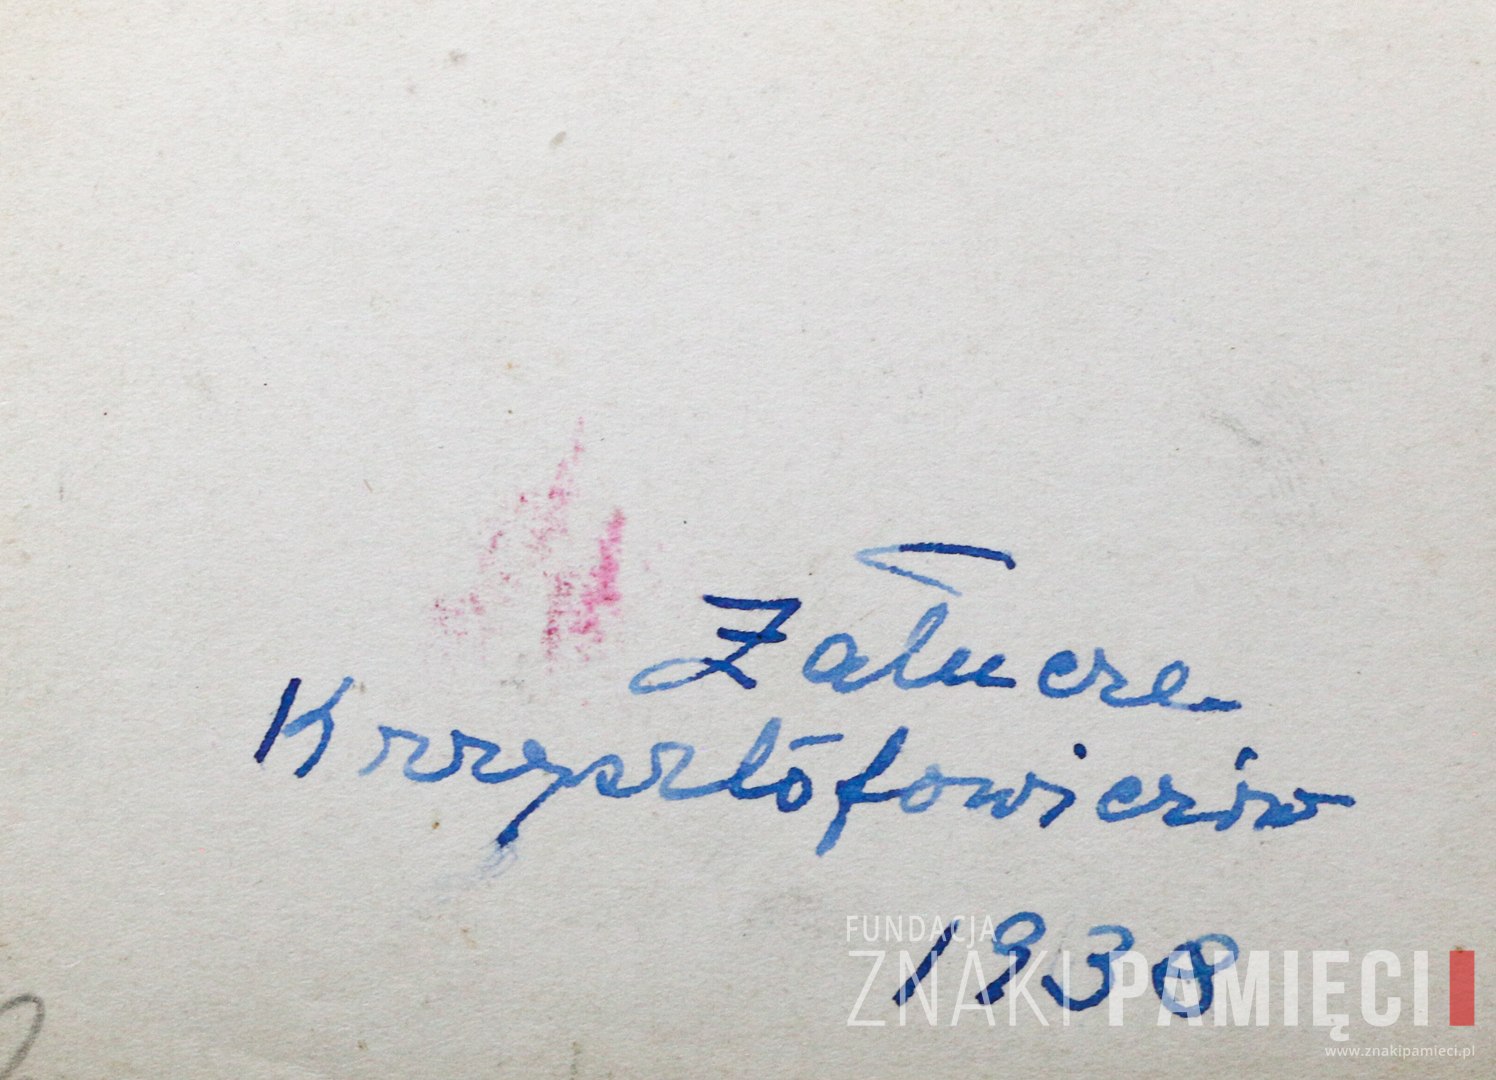 Załucze
Krzysztofowiczów
1938
FUNDACJA
ZNAKI PAMIĘCI
www.znakipamieci.pl